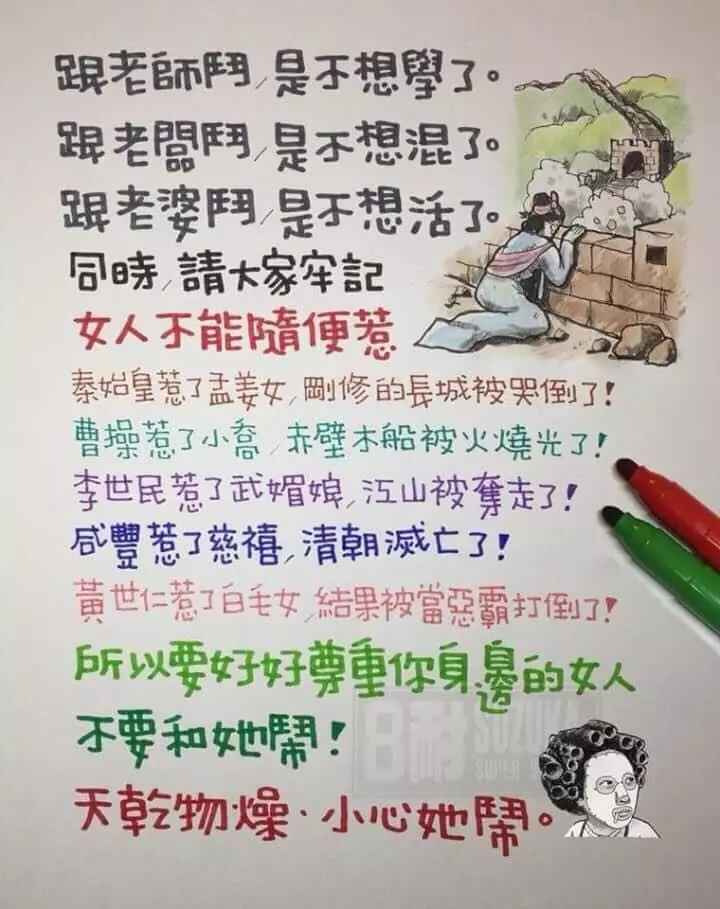 跟老師鬥,是不想學了。
跟老闆鬥,是不想混了。
跟老婆鬥,是不想活了。
同時,請大家牢記
女人不能隨便惹
秦始皇惹了孟姜女,剛修的長城被哭倒了!
曹操惹了小喬,赤壁木船被火燒光了!
李世民惹了武媚娘,江山被奪走了!
咸豐惹了慈禧,清朝滅亡了!
黃世仁惹了白毛女,結果被當惡霸打倒了!
所以要好好尊重你身邊的女人
不要和她鬧!
天乾物燥·小心她鬧。
日耐 SUZUKA
SUPER